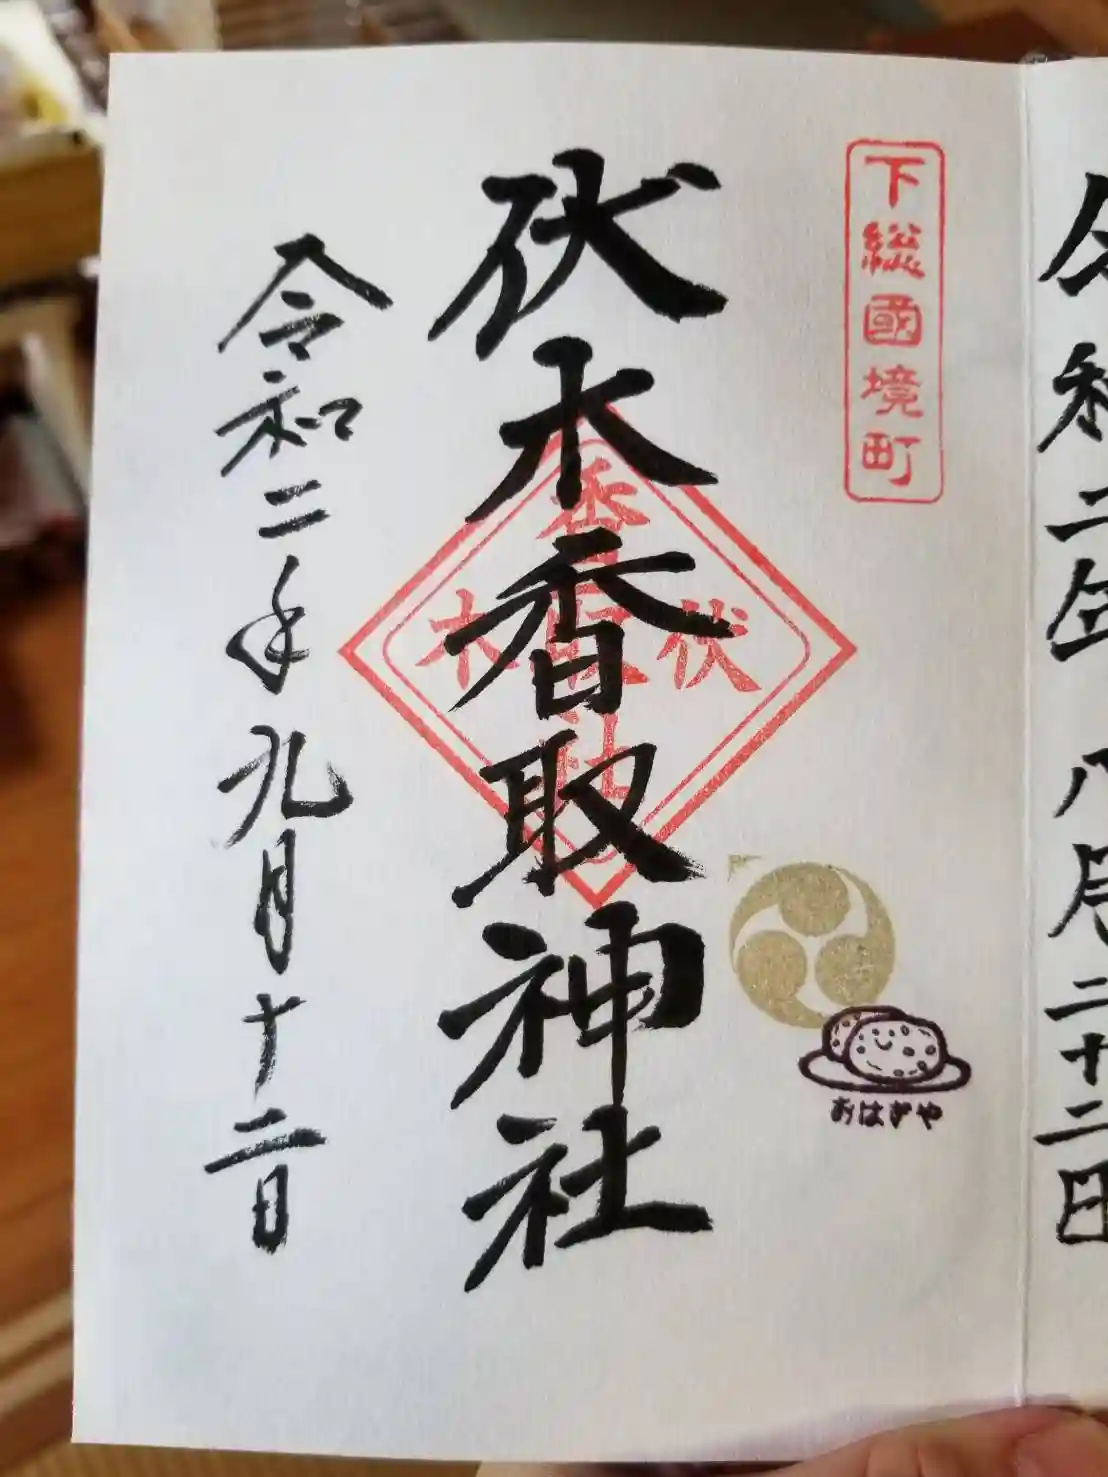 令和二年八月二十二日
下総國境町
伏木香取神社
伏
香取社
木
おはぎや
令和二年九月十二日